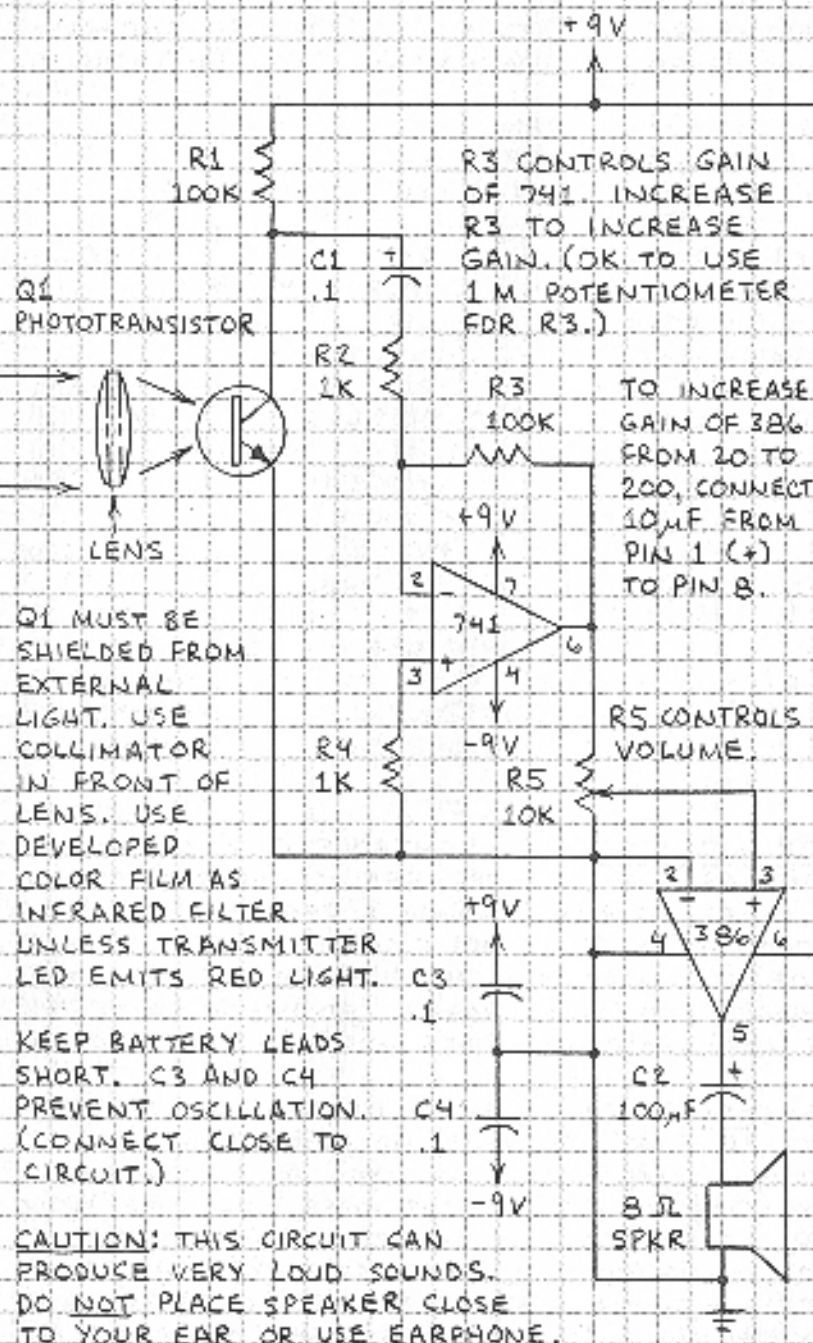 +9V
R1
100K
R3 CONTROLS GAIN
OF 741. INCREASE
R3 TO INCREASE
GAIN. (OK TO USE
1 M POTENTIOMETER
FOR R3.)
C1
.1
+
Q1
PHOTOTRANSISTOR
R2
1K
R3
100K
TO INCREASE
GAIN OF 386
FROM 20 TO
200, CONNECT
10µF FROM
PIN 1 (+)
TO PIN 8.
LENS
+9V
2
-
7
741
6
3
+
4
-9V
Q1 MUST BE
SHIELDED FROM
EXTERNAL
LIGHT. USE
COLLIMATOR
IN FRONT OF
LENS. USE
DEVELOPED
COLOR FILM AS
INFRARED FILTER
UNLESS TRANSMITTER
LED EMITS RED LIGHT.
R4
1K
R5 CONTROLS
VOLUME.
R5
10K
2
3
-
+
4
386
6
5
+9V
C3
.1
KEEP BATTERY LEADS
SHORT. C3 AND C4
PREVENT OSCILLATION.
(CONNECT CLOSE TO
CIRCUIT.)
C4
.1
-9V
C2
100µF
+
8 Ω
SPKR
CAUTION: THIS CIRCUIT CAN
PRODUCE VERY LOUD SOUNDS.
DO NOT PLACE SPEAKER CLOSE
TO YOUR EAR OR USE EARPHONE.